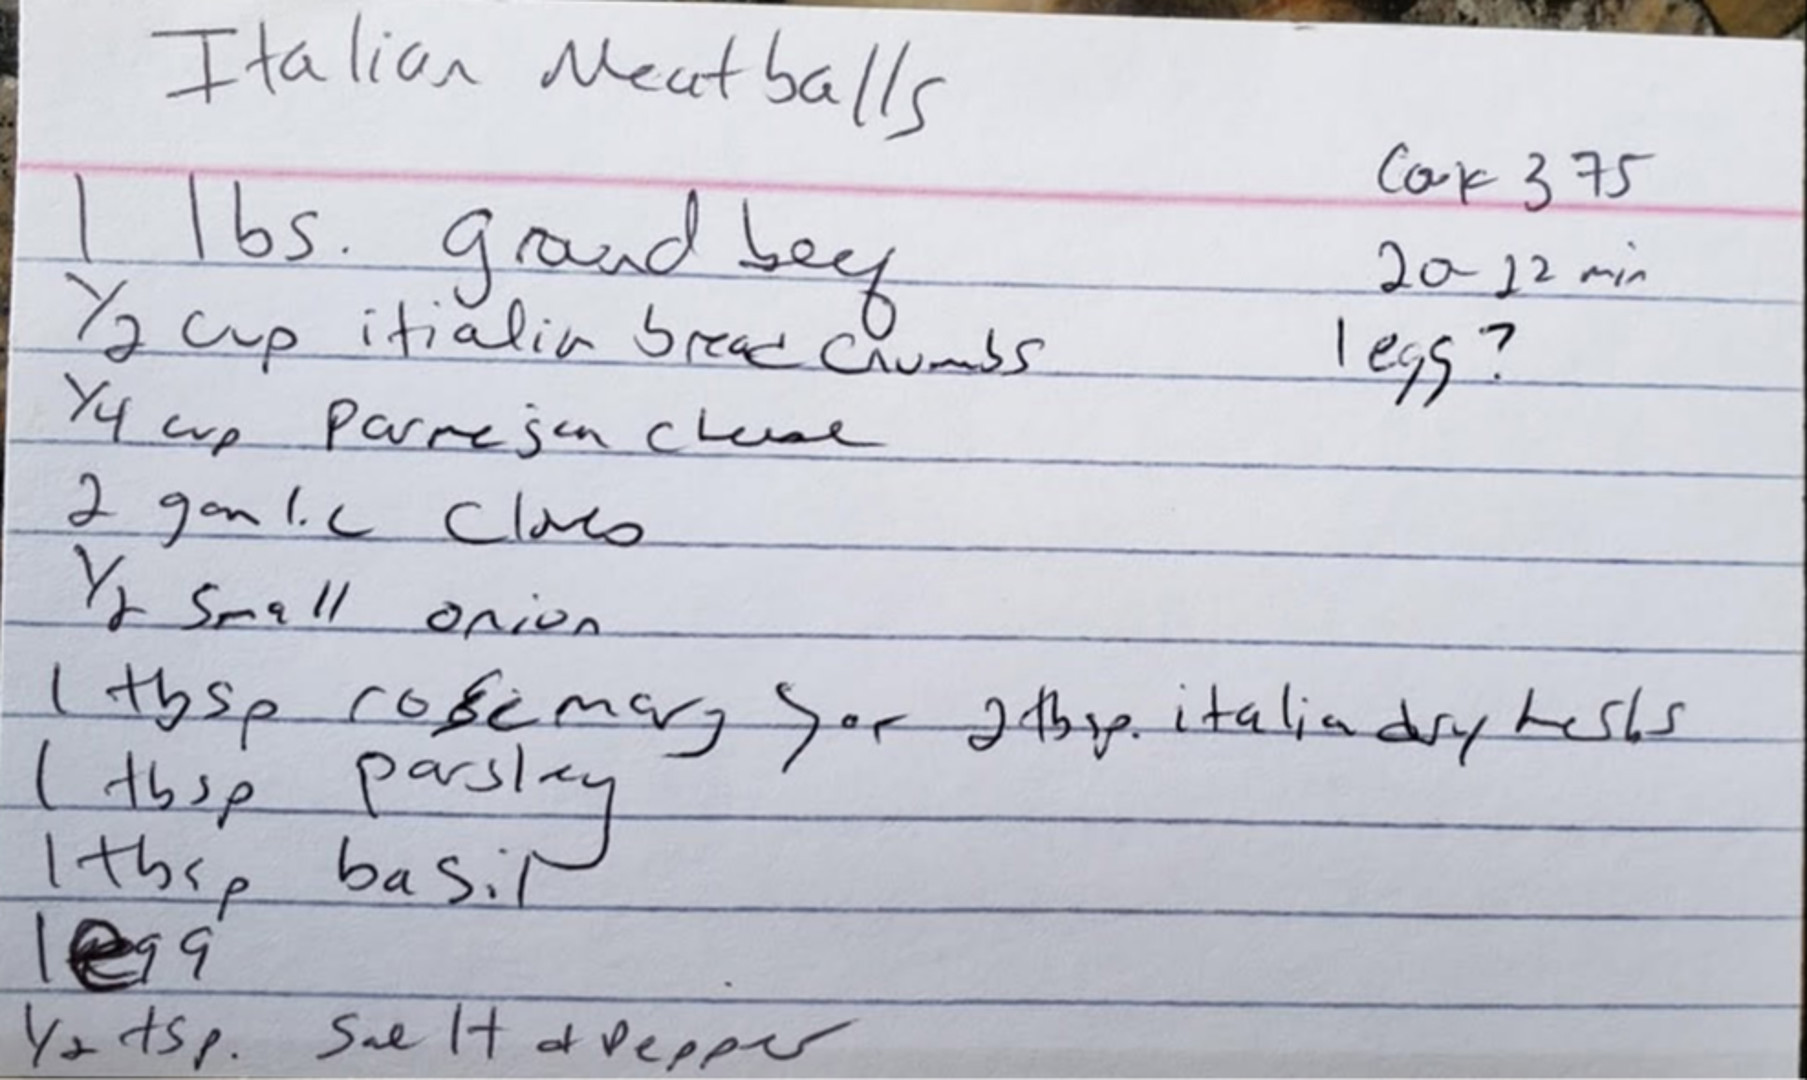 Italian Meatballs
Cook 375
1 lbs. ground beef
20-12 min
1/2 cup itialin bread crumbs
1 egg?
1/4 cup Parmejan cheese
2 garlic cloves
1/2 small onion
1 tbsp rosemary } or 2 tbsp. italian dry herbs
1 tbsp parsley
1 tbsp basil
1 egg
1/2 tsp. Salt & Pepper